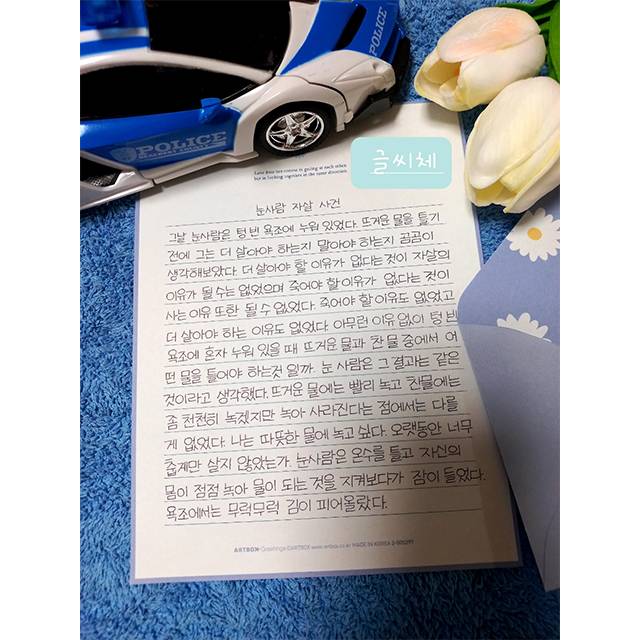 POLICE
POLICE
Love does not consist in gazing at each other,
but in looking together in the same direction.
글씨체
눈사람 자살 사건
그날 눈사람은 텅 빈 욕조에 누워 있었다. 뜨거운 물을 틀기
전에 그는 더 살아야 하는지 말아야 하는지 곰곰이
생각해보았다. 더 살아야 할 이유가 없다는 것이 자살의
이유가 될 수는 없었으며 죽어야 할 이유가 없다는 것이
사는 이유 또한 될 수 없었다. 죽어야 할 이유도 없었고
더 살아야 하는 이유도 없었다. 아무런 이유 없이 텅 빈
욕조에 혼자 누워 있을 때 뜨거운 물과 찬 물 중에서 어
떤 물을 틀어야 하는것 일까. 눈 사람은 그 결과는 같은
것이라고 생각했다. 뜨거운 물에는 빨리 녹고 찬물에는
좀 천천히 녹겠지만 녹아 사라진다는 점에서는 다를
게 없었다. 나는 따뜻한 물에 녹고 싶다. 오랫동안 너무
춥게만 살지 않았는가. 눈사람은 온수를 틀고 자신의
몸이 점점 녹아 물이 되는 것을 지켜보다가 잠이 들었다.
욕조에서는 무럭무럭 김이 피어올랐다.
ARTBOX Greetings ©ARTBOX www.artbox.co.kr MADE IN KOREA